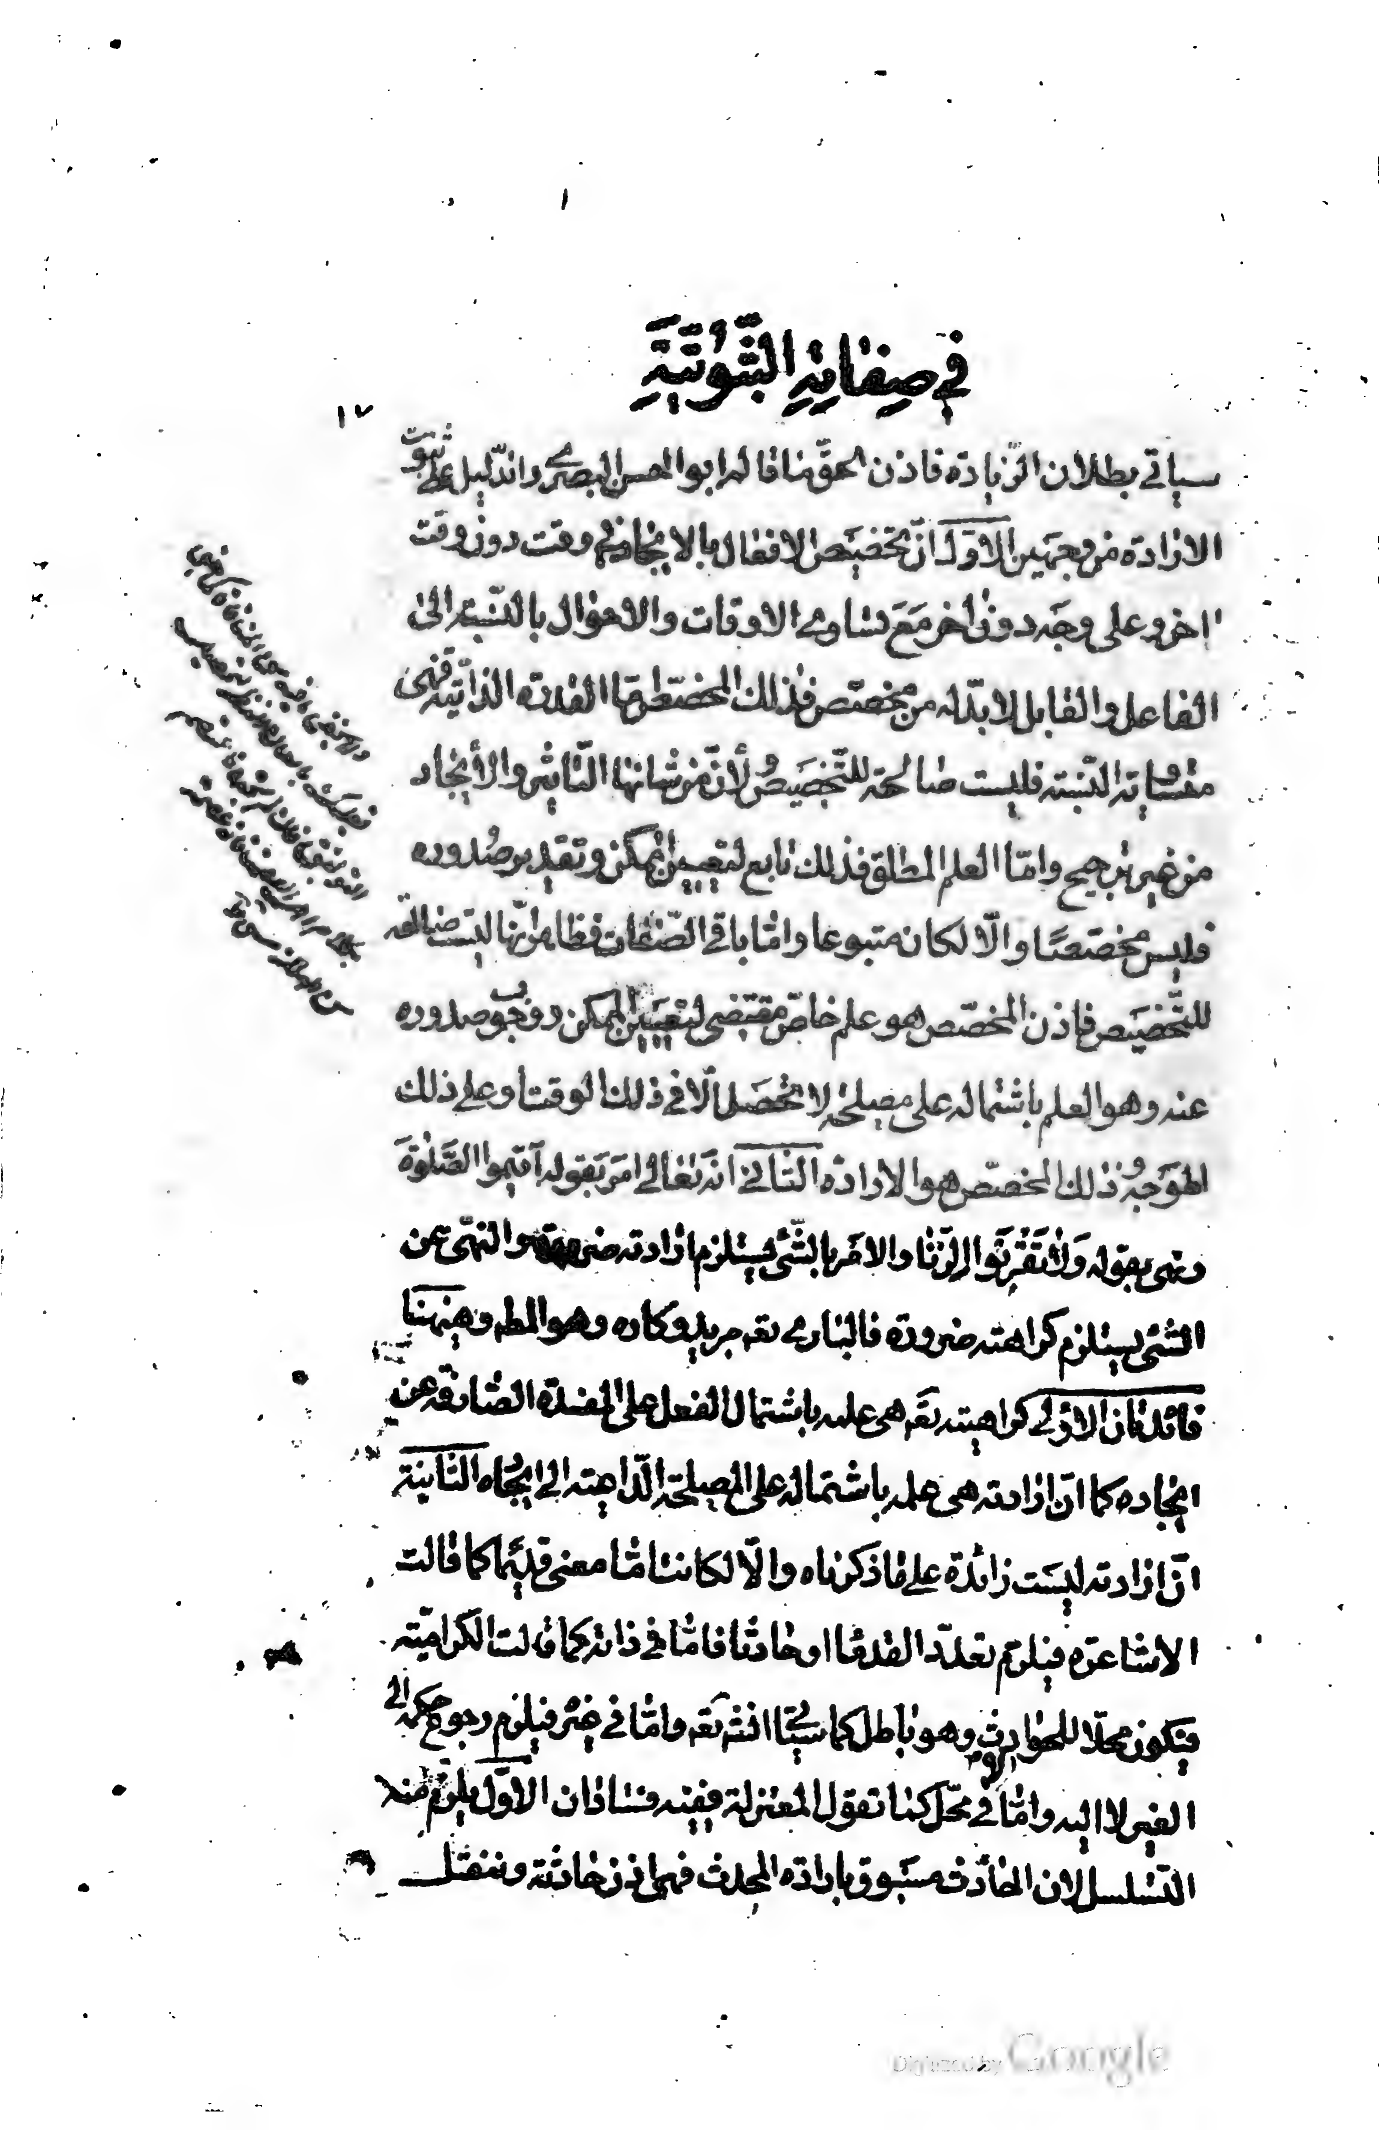 في صفاته الثبوتية
١٧
سياتي بطلان الزيادة فاذن الحق ما قاله ابو الحسن البصري والدليل على ثبوت
الارادة من وجهين الاول ان تخصيص الافعال بالايجاد في وقت دون وقت
اخر وعلى وجه دون اخر مع تساوي الاوقات والاحوال بالنسبة الى
الفاعل والقابل لابد له من مخصص فذلك المخصص اما القدرة الذاتية فهي
متساوية النسبة فليست صالحة للتخصيص ولأن من شانها التاثير والأيجاد
من غير ترجيح واما العلم المطلق فذلك تابع لتعيين الممكن وتقدير صدوره
فليس مخصصا والا لكان متبوعا واما باقي الصفات فظاهر انها ليست صالحة
للتخصيص فاذن المخصص هو علم خاص مقتضى لتعيين الممكن ووجوب صدوره
عنه وهو العلم باشتماله على مصلحة لا تحصل الا في ذلك الوقت او على ذلك
الوجه وذلك المخصص هو الارادة الثاني انه تعالى امر بقوله اقيموا الصلوة
ونهى بقوله ولا تقربوا الزنا والامر بالشئ يستلزم ارادته ضرورة والنهى عن
الشئ يستلزم كراهته ضرورة فالباري تعه مريد وكاره وهو المطه وهيهنا
فائدتان الاولى كراهيته تعه هى علمه باشتمال الفعل على المفسدة الصارفة عن
ايجاده كما ان ارادته هى علمه باشتماله على المصلحة الداعية الى ايجاده الثانية
ان ارادته ليست زائدة على ما ذكرناه والا لكانت اما معنى قديما كما قالت
الاشاعرة فيلزم تعدد القدما او حادثا فاما في ذاته كما قالت الكرامية
فيكون محلا للحوادث وهو باطل كما سياتي انشه تعه واما في غيره فيلزم رجوع حكمه الى
الغير لا اليه واما لا في محل كما تقول المعتزلة ففيه فسادان الاول يلزم منه
التسلسل لان الحادث مسبوق بارادة المحدث فهي اذن حادثة وننقل